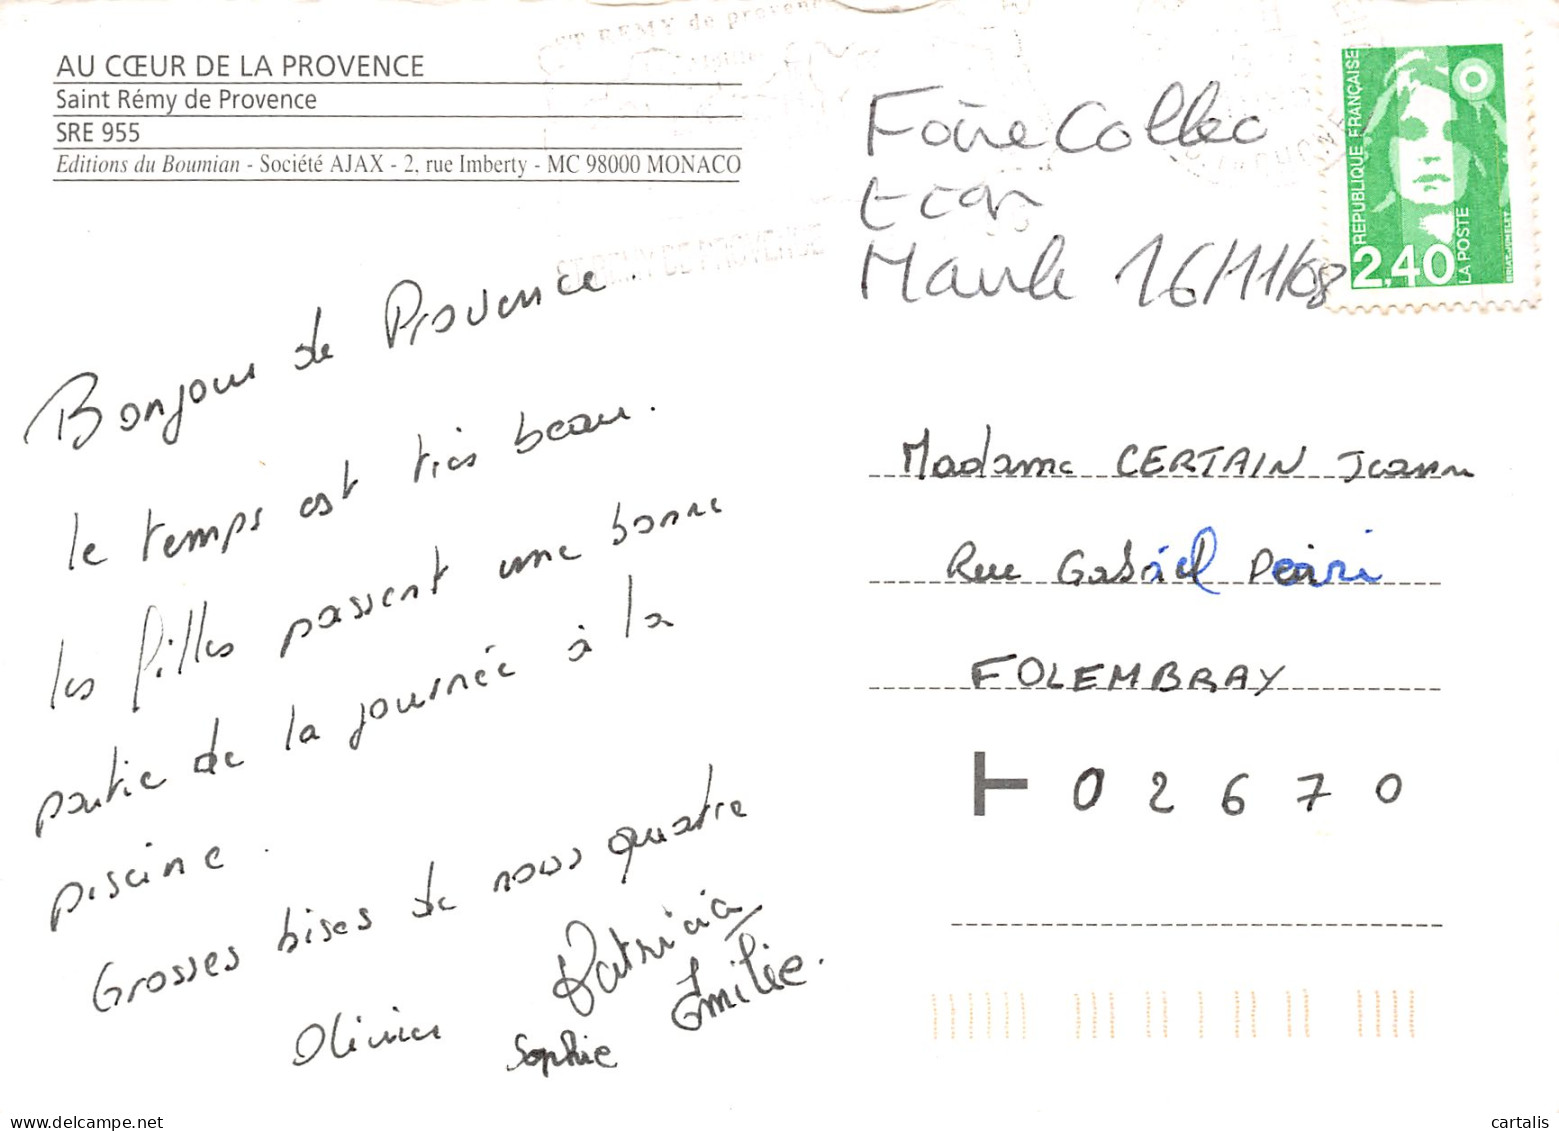 AU CŒUR DE LA PROVENCE
Saint Rémy de Provence
SRE 955
Editions du Boumian - Société AJAX - 2, rue Imberty - MC 98000 MONACO
ST REMY de provence
ST REMY DE PROVENCE
Bonjour de Provence.
le temps est très beau.
les filles passent une bonne
partie de la journée à la
piscine.
Grosses bises de nous quatre
Olivier
Patricia
Sophie
Emilie.
Foire Collec
Ecar
Maule 16/11/08
REPUBLIQUE FRANÇAISE
2,40
LA POSTE
BRIAT-JUMELET
Madame CERTAIN Jeann
Rue Gabriel Peiri
FOLEMBRAY
02670
cartalis